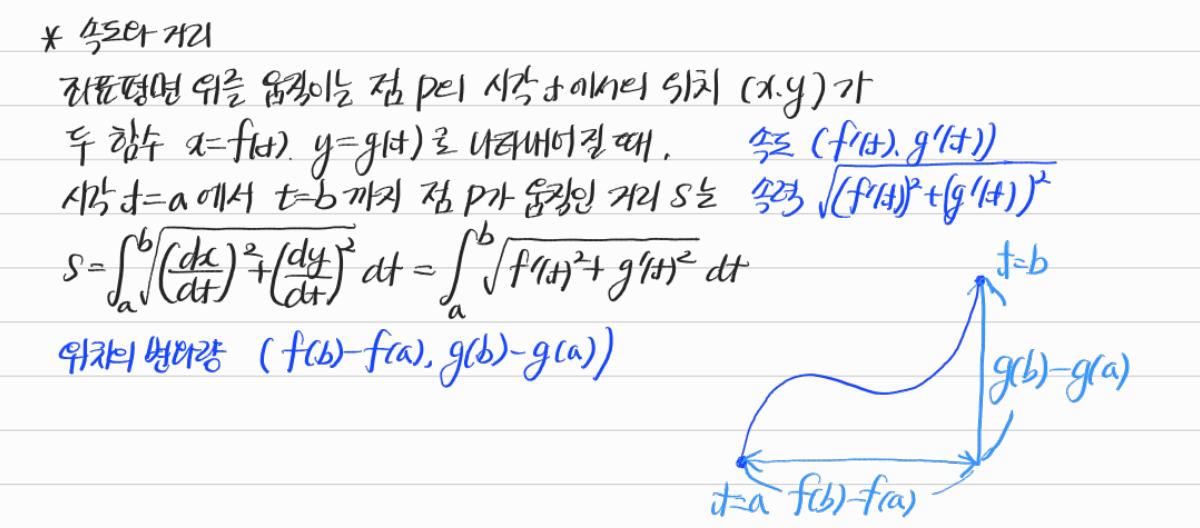 * 속도와 거리
좌표평면 위를 움직이는 점 P의 시각 t에서의 위치 (x.y)가
두 함수 x=f(t). y=g(t)로 나타내어질 때, 속도 (f'(t), g'(t))
시각 t=a에서 t=b까지 점 P가 움직인 거리 S는 속력 √((f'(t))²+(g'(t))²)
S=∫ₐᵇ√((dx/dt)²+(dy/dt)²) dt = ∫ₐᵇ√(f'(t)²+g'(t)²) dt
t=b
위치의 변화량 (f(b)-f(a), g(b)-g(a))
g(b)-g(a)
t=a f(b)-f(a)